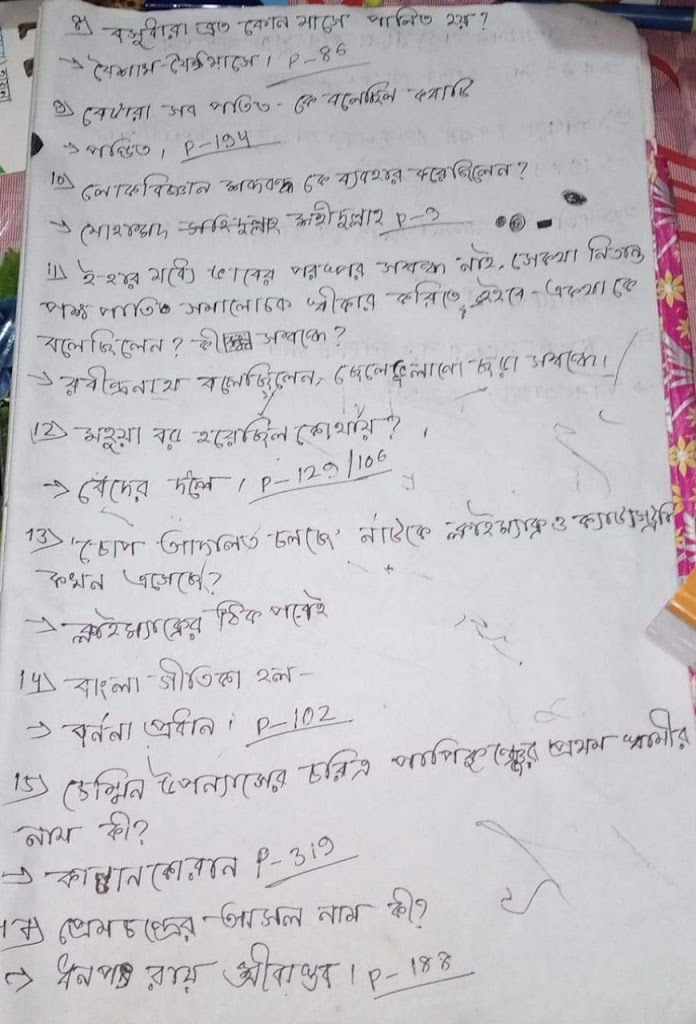 ৪) বসুধারা ব্রত কোন মাসে পালিত হয়?
→ বৈশাখ-জৈষ্ঠমাসে। P-86
৯) বেটারা সব পতিত- কে বলেছিল কথাটি
→ পণ্ডিত। P-194
10) লোকবিজ্ঞান শব্দবন্ধ কে ব্যবহার করেছিলেন?
→ মোহম্মদ শহীদুল্লাহ P-3
11) ইহার মধ্যে ভাবের পরস্পর সম্বন্ধ নাই, সেকথা নিতান্ত
পক্ষপাতি সমালোচক স্বীকার করিতে হইবে-একথা কে
বলেছিলেন? কী সম্বন্ধে?
→ রবীন্দ্রনাথ বলেছিলেন, ছেলেভুলানো ছড়া সম্বন্ধে।
12) মহুয়া বড় হয়েছিল কোথায়?
→ বেদের দলে। P-129/106
13) 'চোপ আদালত চলছে' নাটকে ক্লাইম্যাক্স ও
কখন এসেছে?
→ ক্লাইম্যাক্সের ঠিক পরেই
14) বাংলা গীতিকা হল-
→ বর্ননা প্রধান। P-102
15) চেম্মিন উপন্যাসের চরিত্র পাপিকুঞ্জুর প্রথম স্বামীর
নাম কী?
→ P-319
প্রেমচন্দ্রের আসল নাম কী?
→ ধনপত রায় শ্রীবাস্তব। P-188